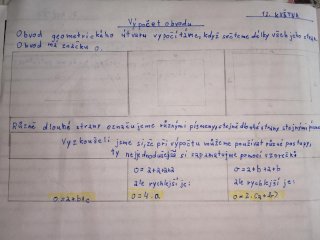 12. KVĚTNA
Výpočet obvodu
Obvod geometrického útvaru vypočítáme, když sečteme délky všech jeho stran.
Obvod má značku o.
Různě dlouhé strany označujeme různými písmeny, stejně dlouhé strany stejnými písmeny
Vyzkoušeli jsme si, že při výpočtu můžeme používat různé postupy,
ty nejjednodušší si zapamatujme pomocí vzorečků
o=a+a+a+a o=a+b+a+b
ale rychlejší je: ale rychlejší je:
o=a+b+c o=4.a o=2.(a+b)